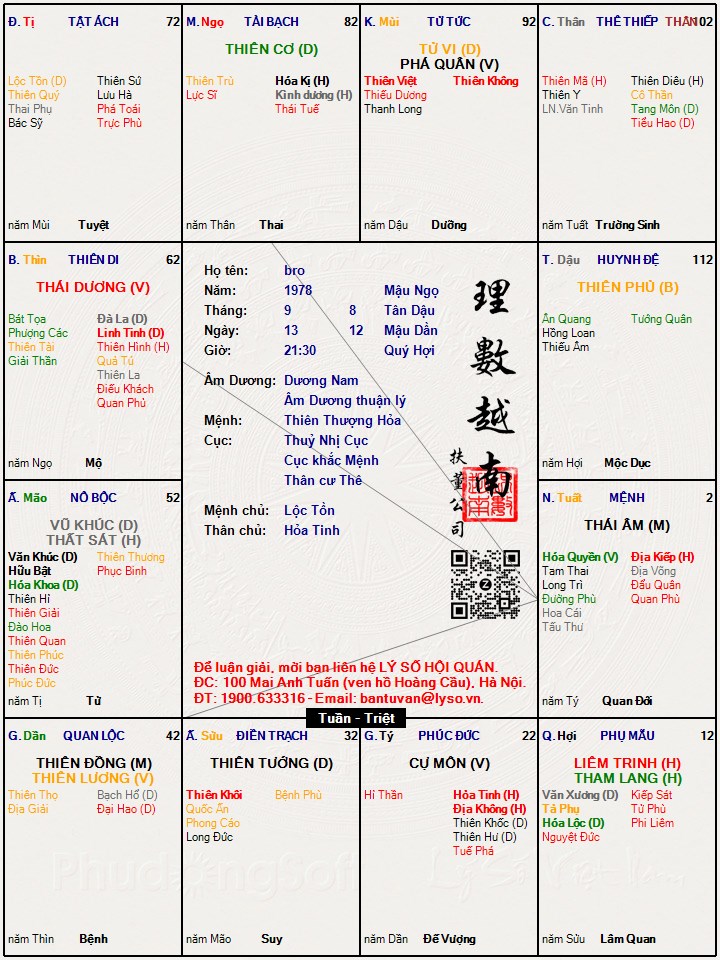 Đ. Tị TẬT ÁCH 72
Lộc Tồn (D) Thiên Sứ
Thiên Quý Lưu Hà
Thai Phụ Phá Toái
Bác Sỹ Trực Phù
năm Mùi Tuyệt
M. Ngọ TÀI BẠCH 82
THIÊN CƠ (D)
Thiên Trù Hóa Kị (H)
Lực Sĩ Kình dương (H)
Thái Tuế
năm Thân Thai
K. Mùi TỬ TỨC 92
TỬ VI (D)
PHÁ QUÂN (V)
Thiên Việt Thiên Không
Thiếu Dương
Thanh Long
năm Dậu Dưỡng
C. Thân THÊ THIẾP THÂN 102
Thiên Mã (H) Thiên Diêu (H)
Thiên Y Cô Thần
LN.Văn Tinh Tang Môn (D)
Tiểu Hao (D)
năm Tuất Trường Sinh
B. Thìn THIÊN DI 62
THÁI DƯƠNG (V)
Bát Tọa Đà La (D)
Phượng Các Linh Tinh (D)
Thiên Tài Thiên Hình (H)
Giải Thần Quả Tú
Thiên La
Điếu Khách
Quan Phủ
năm Ngọ Mộ
Họ tên: bro
Năm: 1978 Mậu Ngọ
Tháng: 9 8 Tân Dậu
Ngày: 13 12 Mậu Dần
Giờ: 21:30 Quý Hợi
Âm Dương: Dương Nam
Âm Dương thuận lý
Mệnh: Thiên Thượng Hỏa
Cục: Thuỷ Nhị Cục
Cục khắc Mệnh
Thân cư Thê
Mệnh chủ: Lộc Tồn
Thân chủ: Hỏa Tinh
理數越南
扶董公司
Z
T. Dậu HUYNH ĐỆ 112
THIÊN PHỦ (B)
Ân Quang Tướng Quân
Hồng Loan
Thiếu Âm
năm Hợi Mộc Dục
Ấ. Mão NÔ BỘC 52
VŨ KHÚC (D)
THẤT SÁT (H)
Văn Khúc (D) Thiên Thương
Hữu Bật Phục Binh
Hóa Khoa (D)
Thiên Hỉ
Thiên Giải
Đào Hoa
Thiên Quan
Thiên Phúc
Thiên Đức
Phúc Đức
năm Tị Tử
N. Tuất MỆNH 2
THÁI ÂM (M)
Hóa Quyền (V) Địa Kiếp (H)
Tam Thai Địa Võng
Long Trì Đẩu Quân
Đường Phù Quan Phù
Hoa Cái
Tấu Thư
năm Tý Quan Đới
Để luận giải, mời bạn liên hệ LÝ SỐ HỘI QUÁN.
ĐC: 100 Mai Anh Tuấn (ven hồ Hoàng Cầu), Hà Nội.
ĐT: 1900.633316 - Email: bantuvan@lyso.vn.
Tuần - Triệt
G. Dần QUAN LỘC 42
THIÊN ĐỒNG (M)
THIÊN LƯƠNG (V)
Thiên Thọ Bạch Hổ (D)
Địa Giải Đại Hao (D)
năm Thìn Bệnh
Ấ. Sửu ĐIỀN TRẠCH 32
THIÊN TƯỚNG (D)
Thiên Khôi Bệnh Phù
Quốc Ấn
Phong Cáo
Long Đức
năm Mão Suy
G. Tý PHÚC ĐỨC 22
CỰ MÔN (V)
Hỉ Thần Hỏa Tinh (H)
Địa Không (H)
Thiên Khốc (D)
Thiên Hư (D)
Tuế Phá
năm Dần Đế Vượng
Q. Hợi PHỤ MẪU 12
LIÊM TRINH (H)
THAM LANG (H)
Văn Xương (D) Kiếp Sát
Tả Phụ Tử Phù
Hóa Lộc (D) Phi Liêm
Nguyệt Đức
năm Sửu Lâm Quan